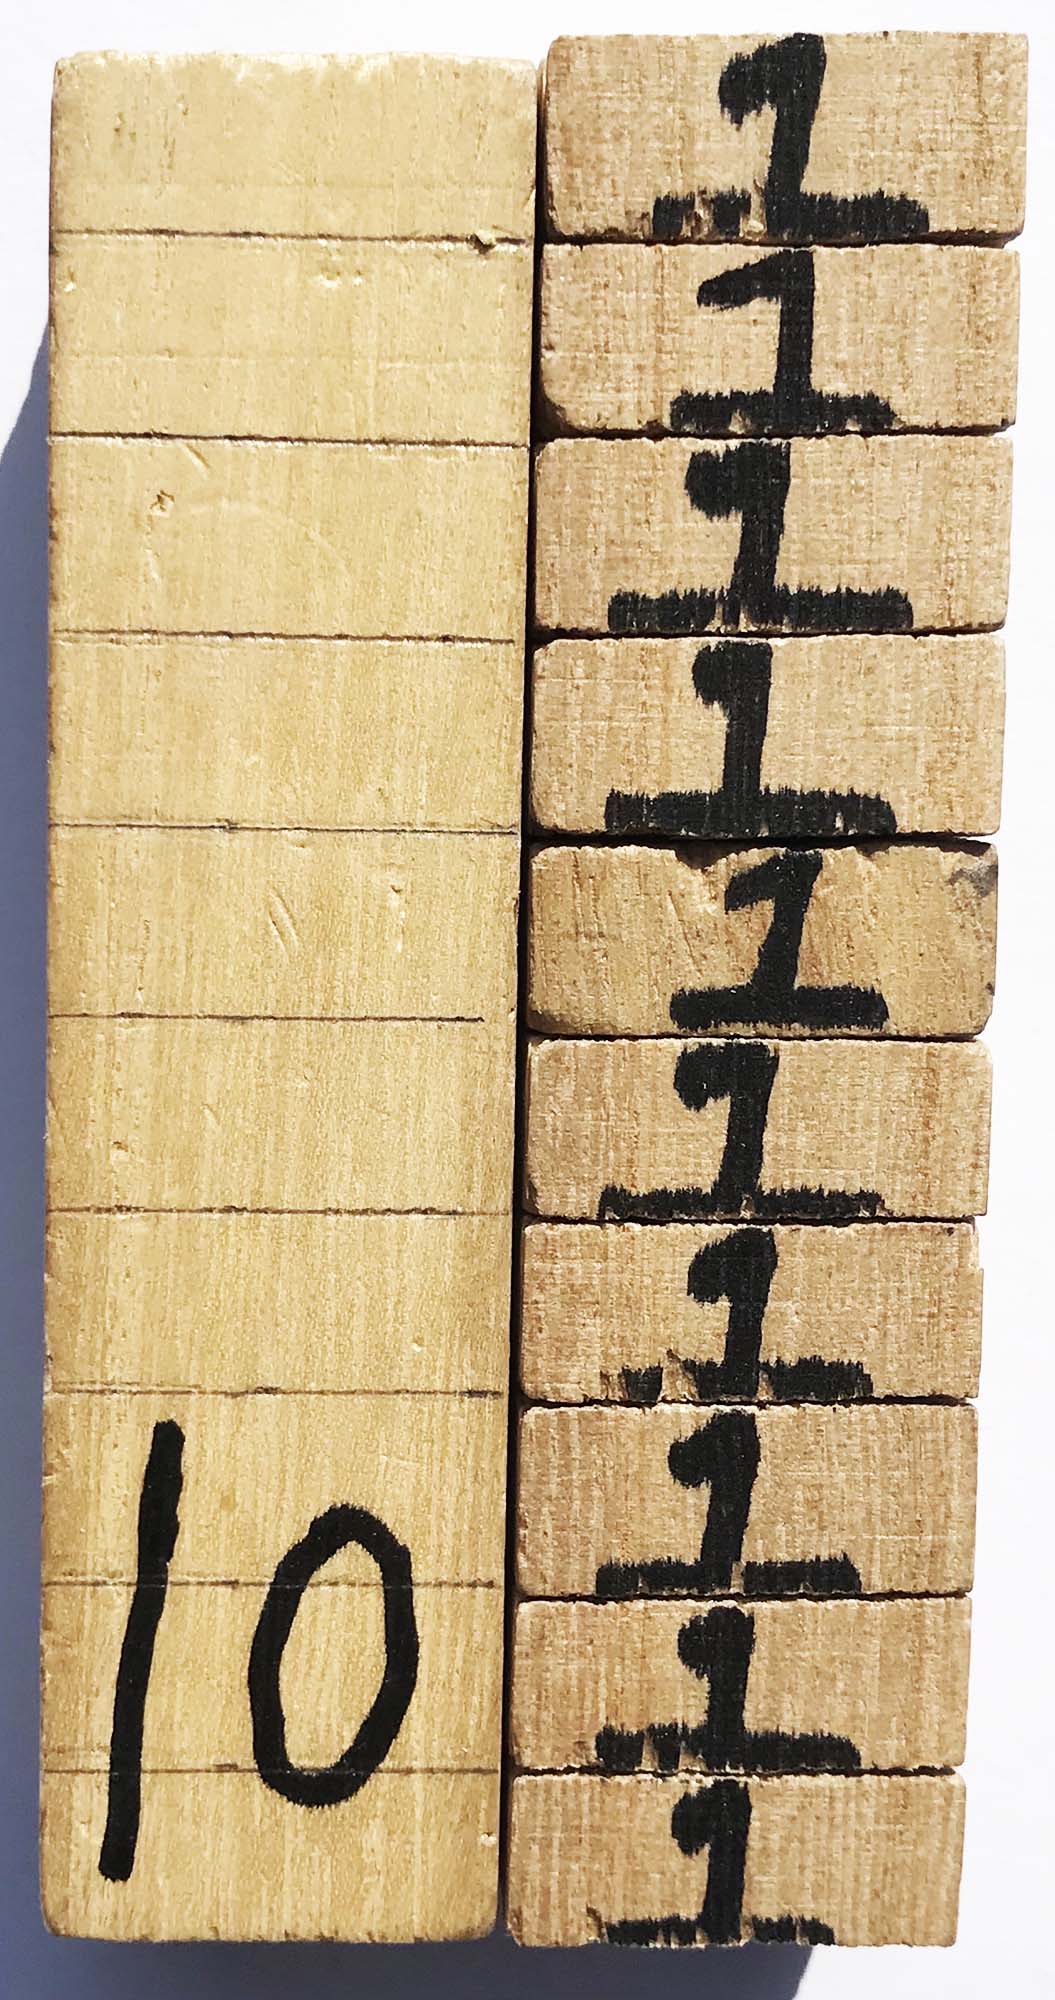 1
1
1
1
1
1
1
1
1
1
10